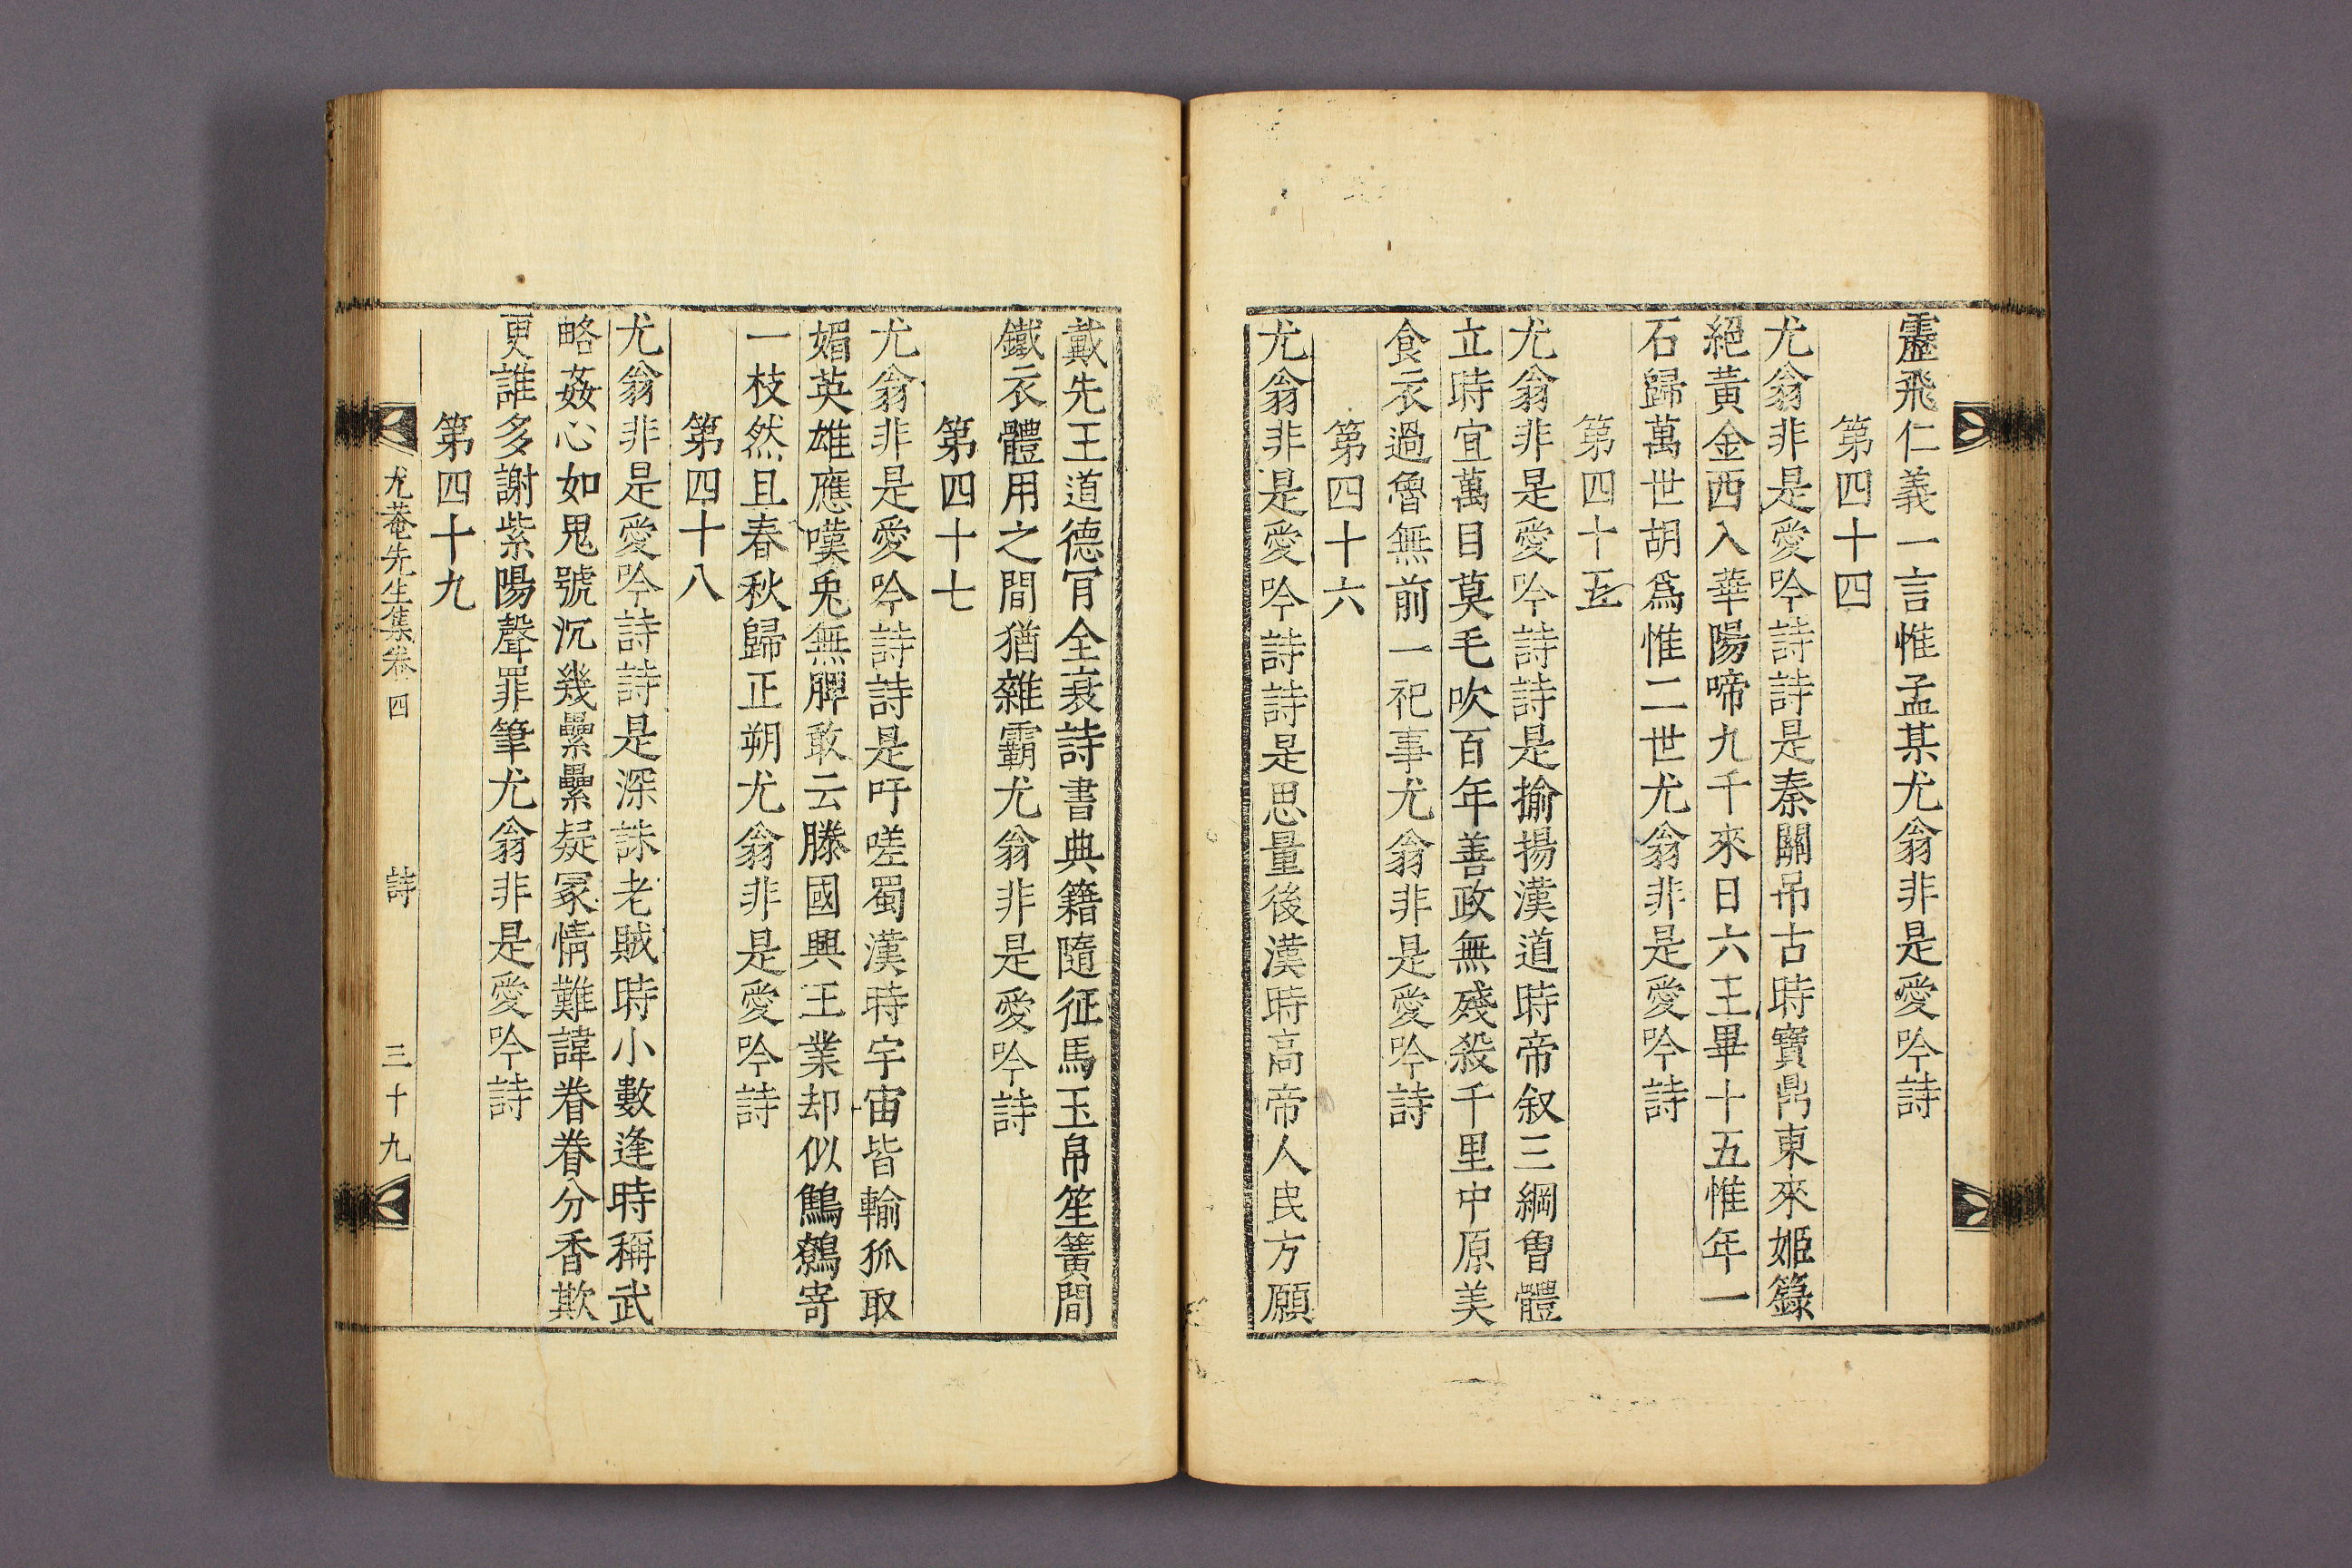 靂飛仁義一言惟孟某尤翁非是愛吟詩
第四十四
尤翁非是愛吟詩詩是秦關吊古時寶鼎東來姬籙
絕黃金西入華陽啼九千來日六王畢十五惟年一
石歸萬世胡爲惟二世尤翁非是愛吟詩
第四十五
尤翁非是愛吟詩詩是揄揚漢道時帝叙三綱曾體
立時宜萬目莫毛吹百年善政無殘殺千里中原美
食衣過魯無前一祀事尤翁非是愛吟詩
第四十六
尤翁非是愛吟詩詩是思量後漢時高帝人民方願
戴先王道德肎全衰詩書典籍隨征馬玉帛笙簧間
鐵衣體用之間猶雜霸尤翁非是愛吟詩
第四十七
尤翁非是愛吟詩詩是吁嗟蜀漢時宇宙皆輸狐取
媚英雄應嘆兎無脾敢云勝國興王業却似鷦鷯寄
一枝然且春秋歸正朔尤翁非是愛吟詩
第四十八
尤翁非是愛吟詩詩是深誅老賊時小數逢時稱武
略姦心如鬼號沉幾纍纍疑冢情難諱眷眷分香欺
更誰多謝紫陽聲罪筆尤翁非是愛吟詩
第四十九
尤菴先生集卷四 詩 三十九